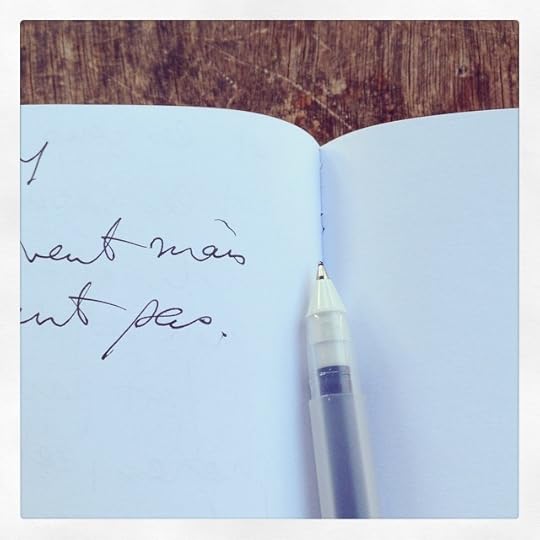 vent mais
ent pas.